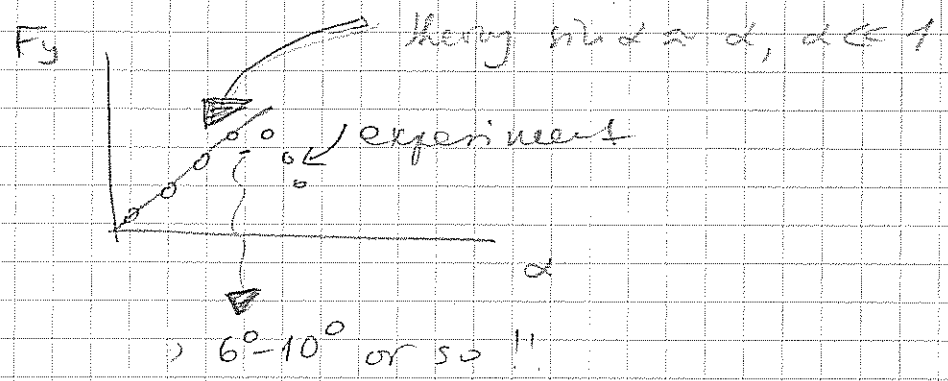 Fy
theory sin α ≈ α, α << 1
experiment
α
6°-10° or so !!